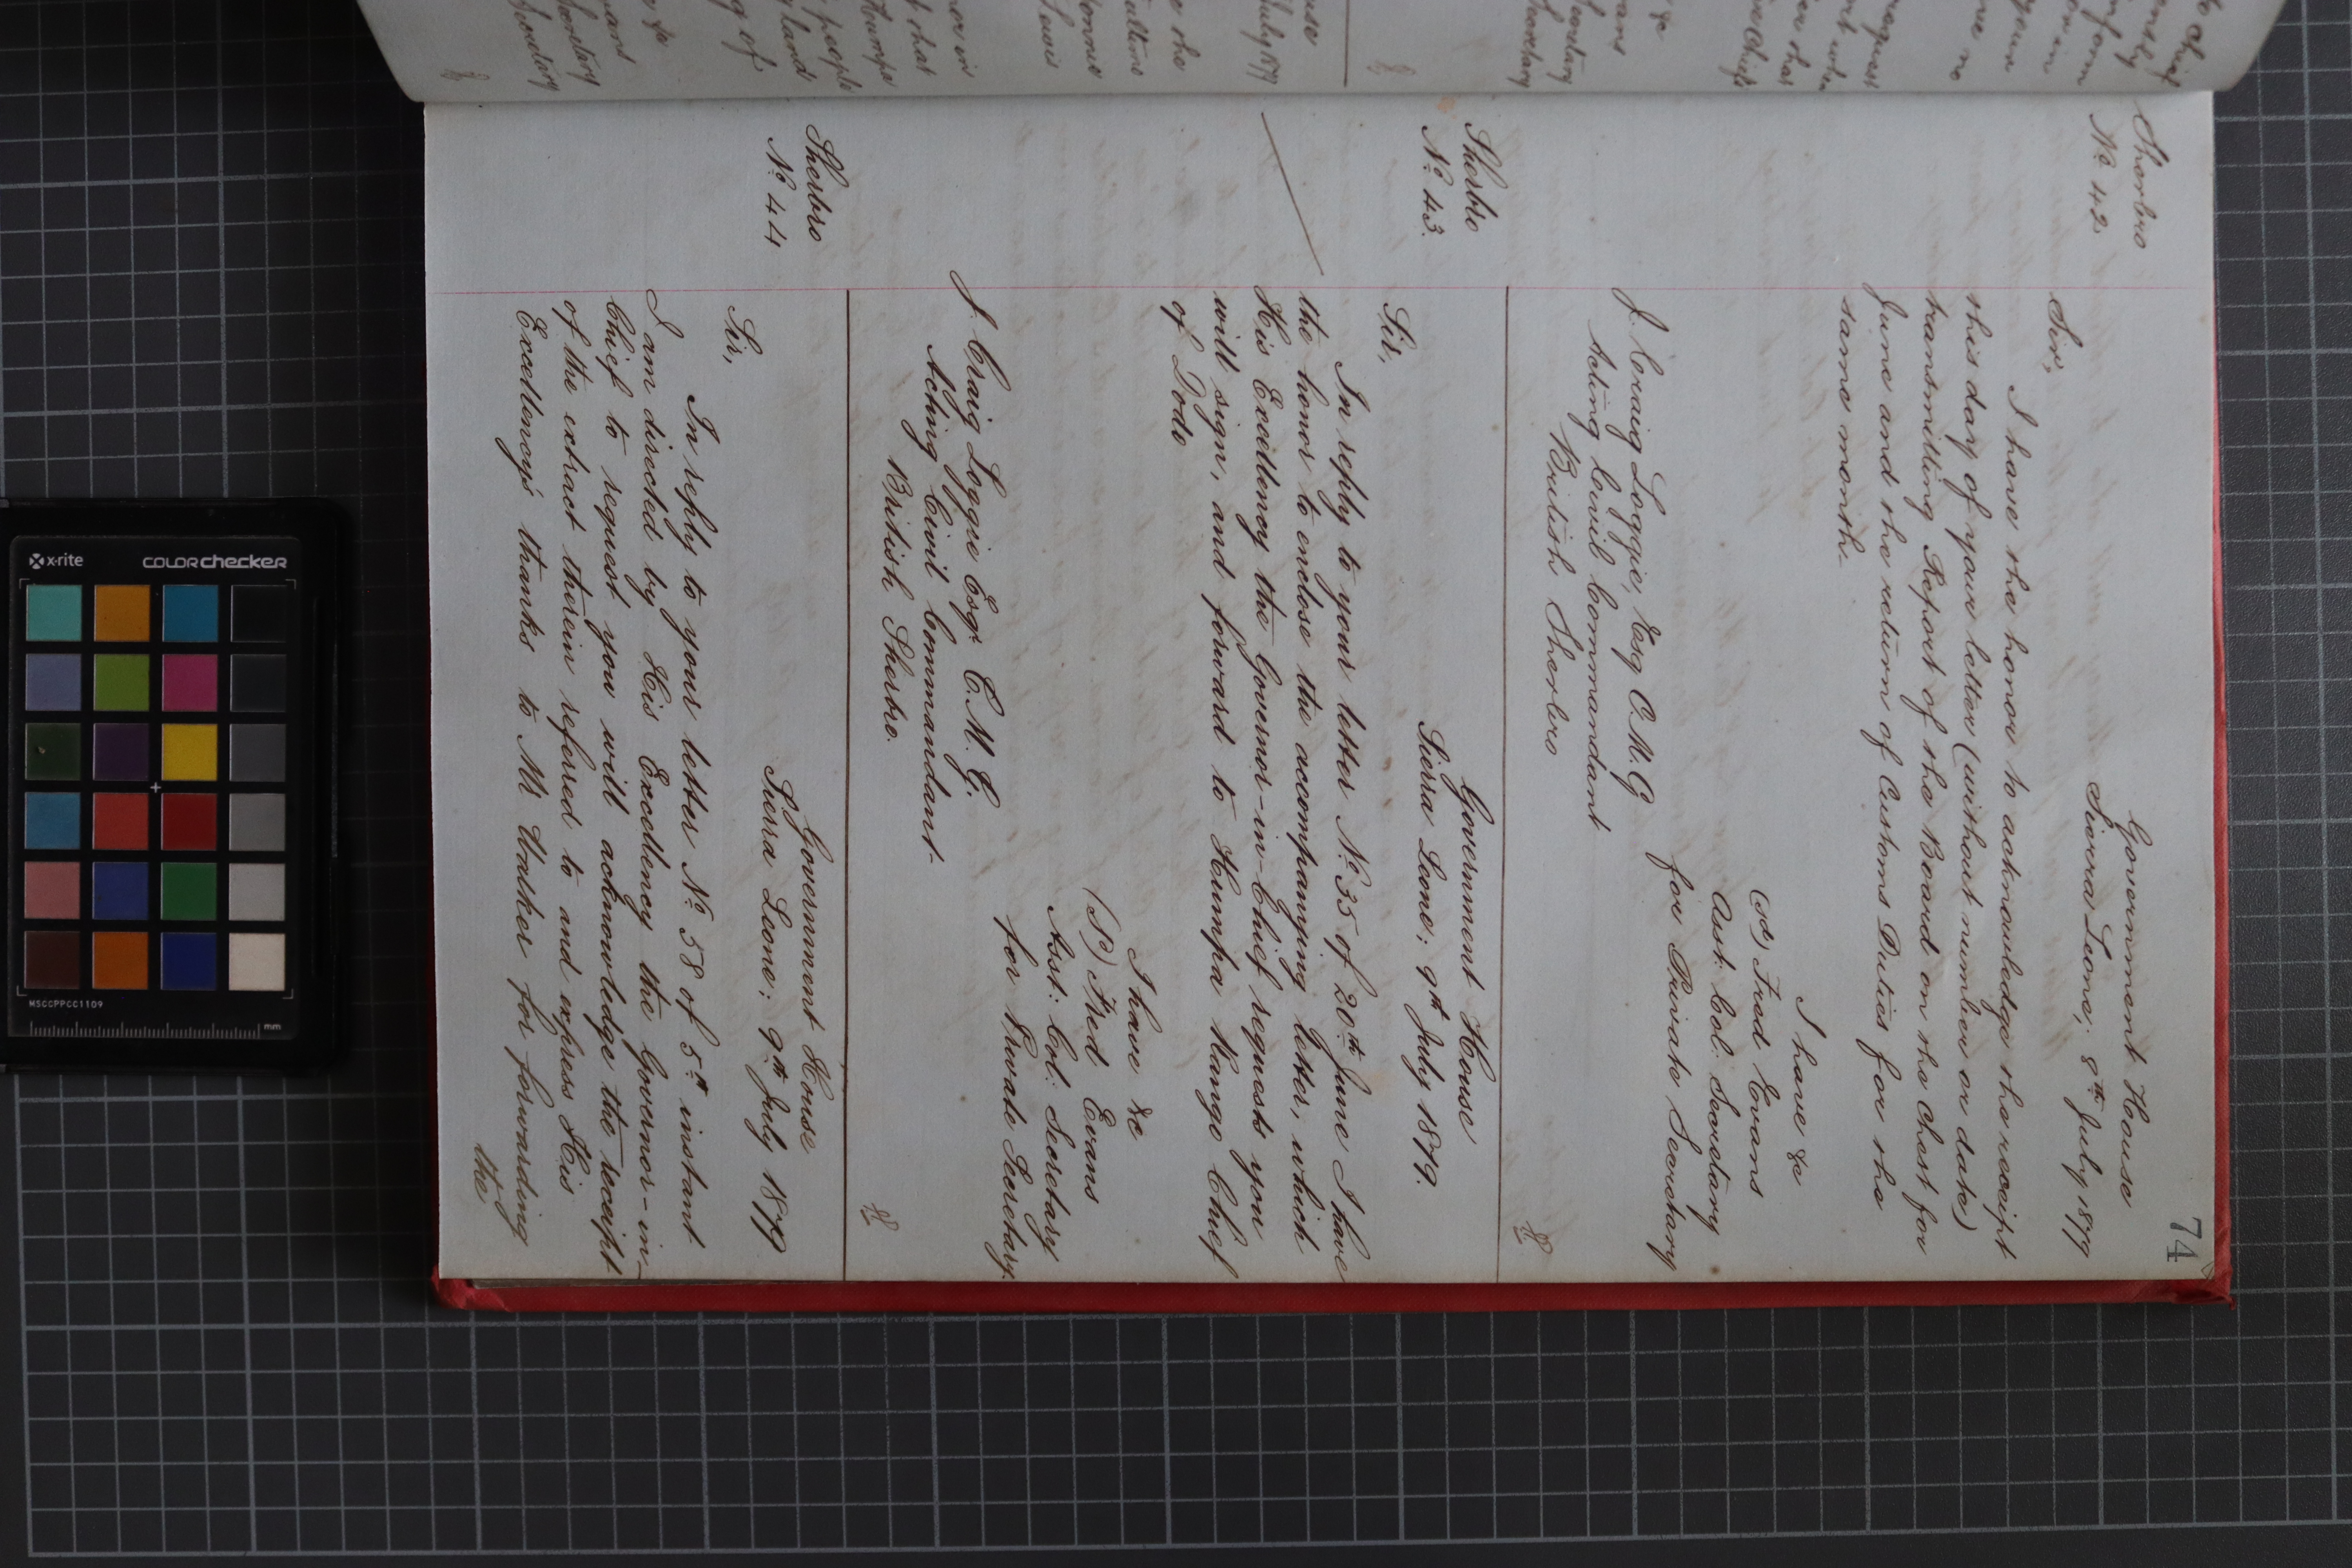 74
Sherbro
Nº 42
Government House
Sierra Leone; 8th July 1879
Sir,
I have the honor to acknowledge the receipt
this day of your letter (without number or date)
transmitting Report of the Board on the Chest for
June and the return of Customs Duties for the
same month.
I have &c
(sd) Fred Evans
Asst. Col. Secretary
for Private Secretary
J. Craig Loggie, Esq C.M.G
Acting Civil Commandant
British Sherbro
Sherbro
Nº 43.
Government House
Sierra Leone; 9th July 1879.
Sir,
In reply to your letter Nº 35 of 20th June I have
the honor to enclose the accompanying letter, which
His Excellency the Governor-in-Chief requests you
will sign, and forward to Humpa Rango Chief
of Dodo
I have &c
(Sd) Fred Evans
Asst: Col: Secretary
for Private Secretary.
J. Craig Loggie Esqr. C.M.G.
Acting Civil Commandant.
British Sherbro.
Sherbro
Nº 44
Government House
Sierra Leone; 9th July 1879.
Sir,
In reply to your letter Nº 58 of 5th instant
I am directed by His Excellency the Governor-in-
Chief to request you will acknowledge the receipt
of the extract therein referred to and express His
Excellency's thanks to Mr Walker for forwarding
the
x-rite
colorchecker
MSCCPPCC1109
mm